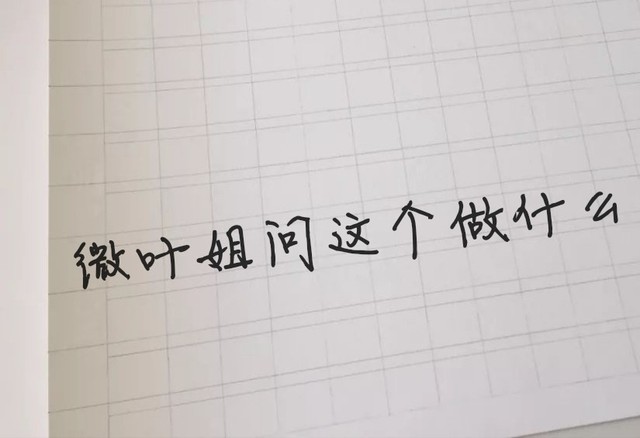 微叶姐问这个做什么